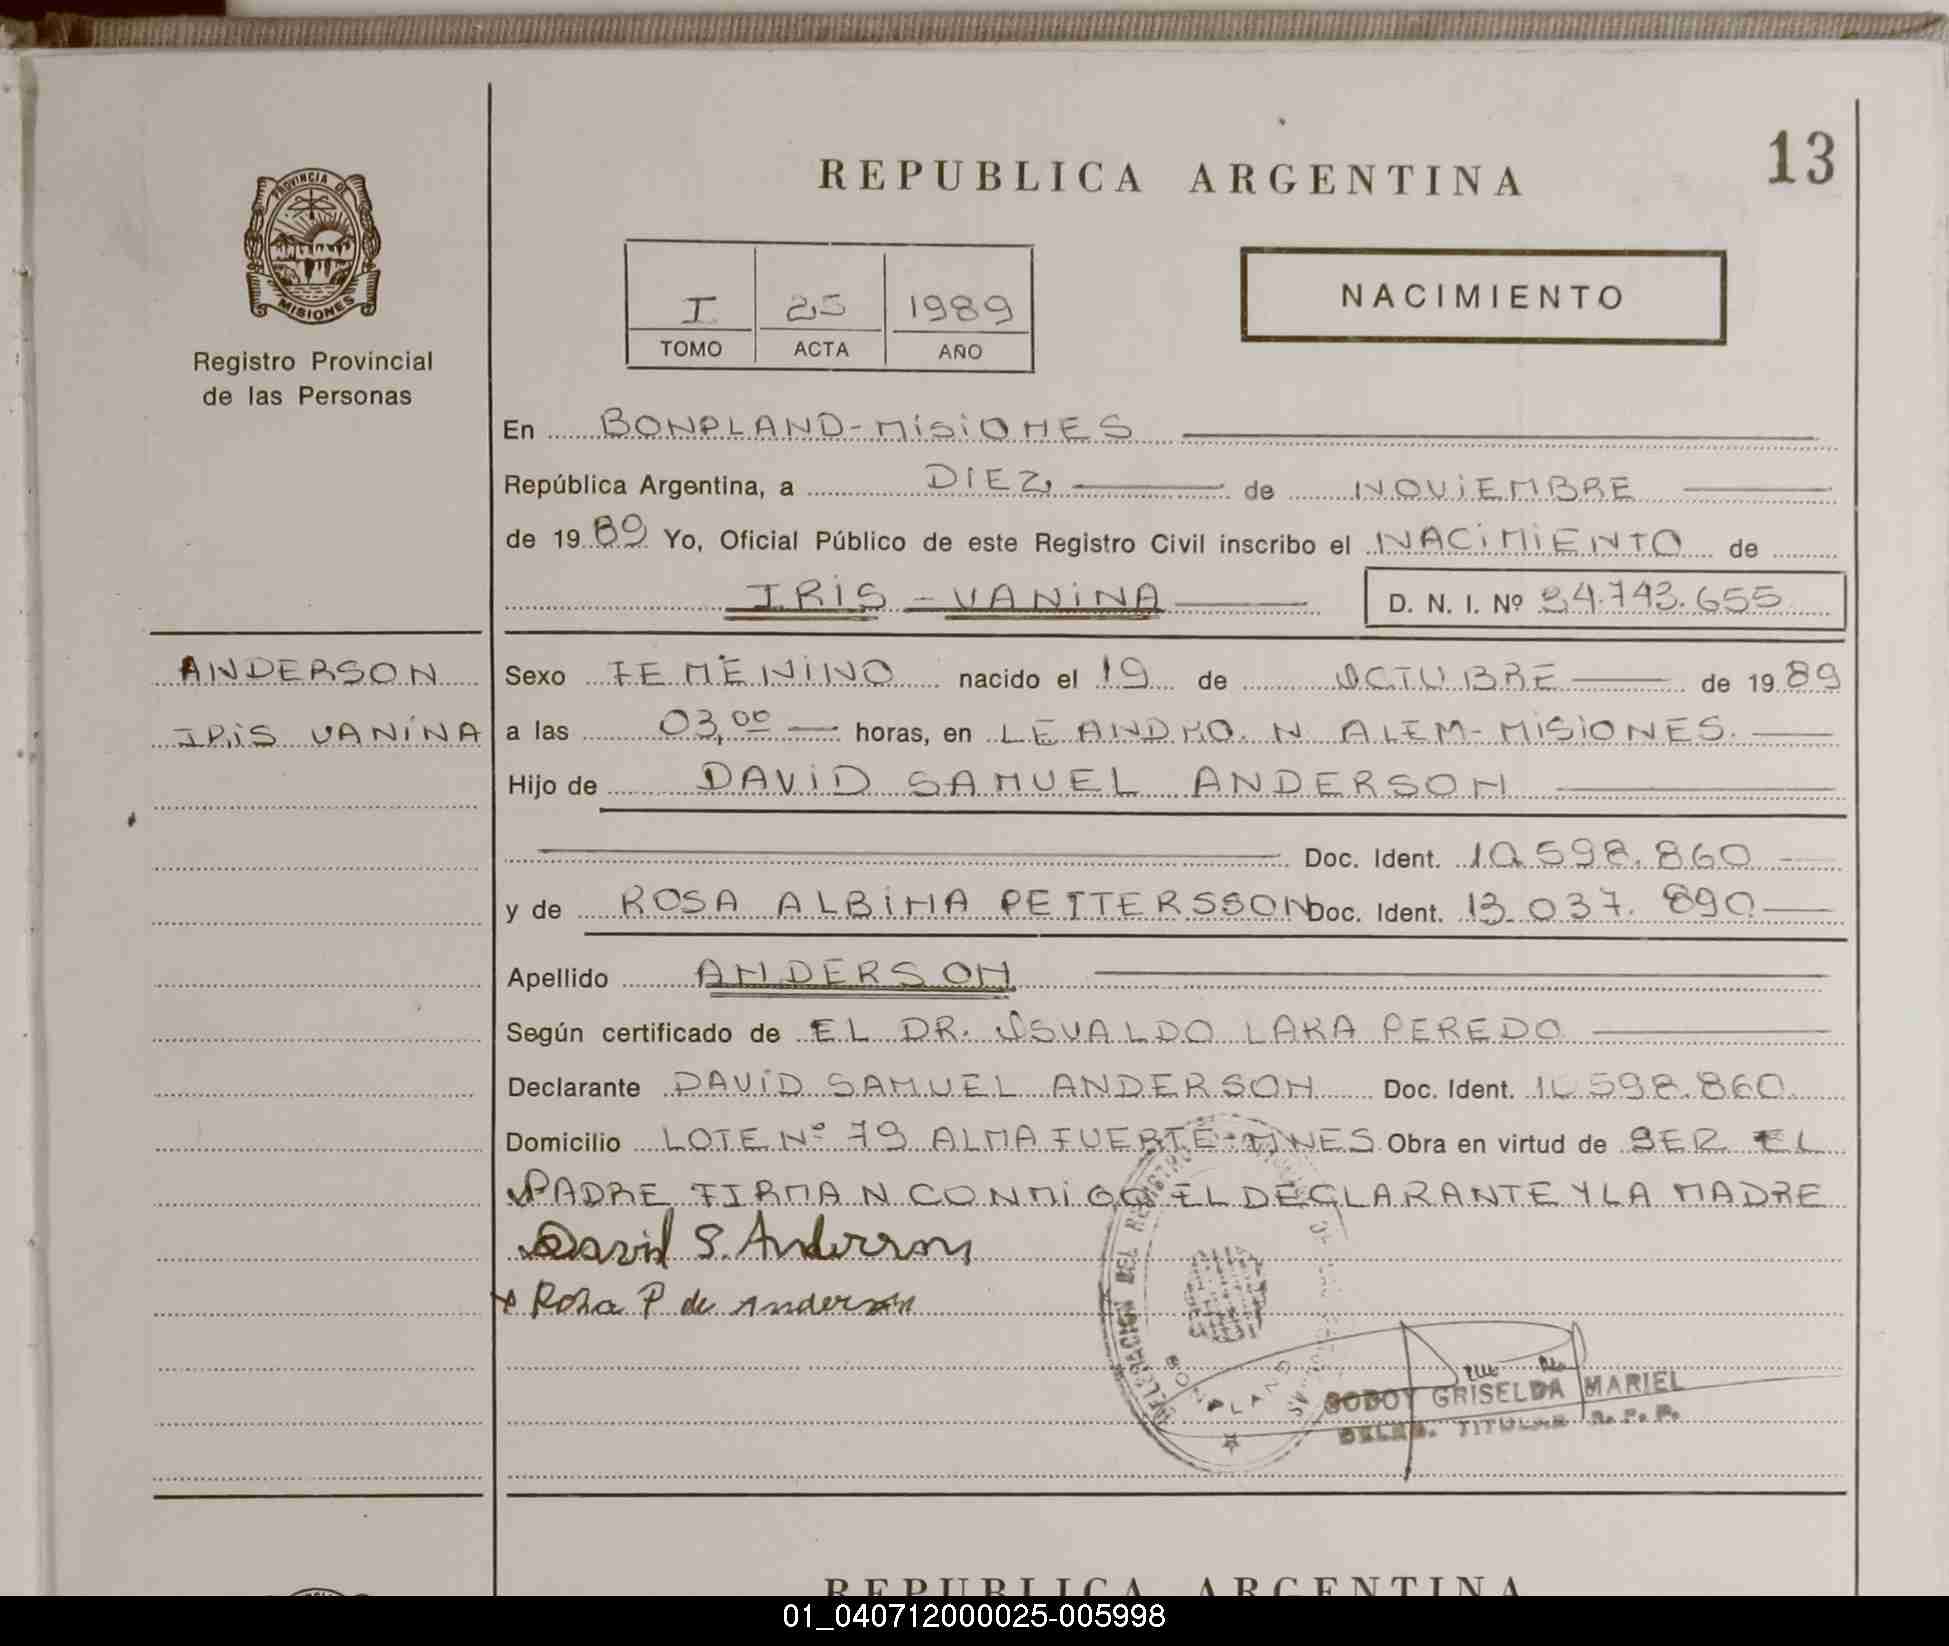 13
REPUBLICA ARGENTINA
PROVINCIA DE
MISIONES
Registro Provincial
de las Personas
I 25 1989
TOMO ACTA AÑO
NACIMIENTO
En BONPLAND-MISIONES
República Argentina, a DIEZ de NOVIEMBRE
de 1989 Yo, Oficial Público de este Registro Civil inscribo el NACIMIENTO de
IRIS - VANINA D. N. I. Nº 34.743.655
ANDERSON
IRIS VANINA
Sexo FEMENINO nacido el 19 de OCTUBRE de 1989
a las 03,00 horas, en LEANDRO N ALEM-MISIONES.
Hijo de DAVID SAMUEL ANDERSON
Doc. Ident. 10.598.860
y de ROSA ALBINA PETTERSSON Doc. Ident. 13.037.890
Apellido ANDERSON
Según certificado de EL DR. OSVALDO LARA PEREDO
Declarante DAVID SAMUEL ANDERSON Doc. Ident. 10.598.860
Domicilio LOTE Nº 79 ALMAFUERTE-MNES Obra en virtud de SER EL
PADRE FIRMAN CONMIGO EL DECLARANTE Y LA MADRE
David S. Anderson
Rosa P de Anderson
DELEGACION DEL REGISTRO
BONPLAND
GODOY GRISELDA MARIEL
DELEG. TITULAR R. P. P.
REPUBLICA ARGENTINA
01_040712000025-005998